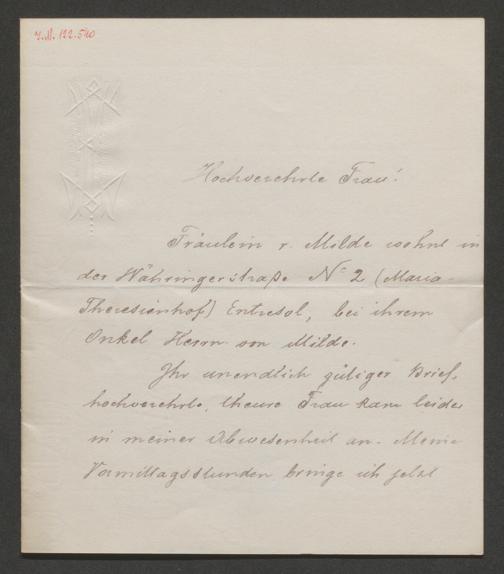 J.N. 122.540
Hochverehrte Frau!
Fräulein v. Milde wohnt in
der Währingerstraße No 2 (Maria-
Theresienhof) Entresol, bei ihrem
Onkel Herrn von Milde.
Ihr unendlich gütiger Brief,
hochverehrte, theure Frau kam leider
in meiner Abwesenheit an. Meine
Vormittagsstunden bringe ich jetzt